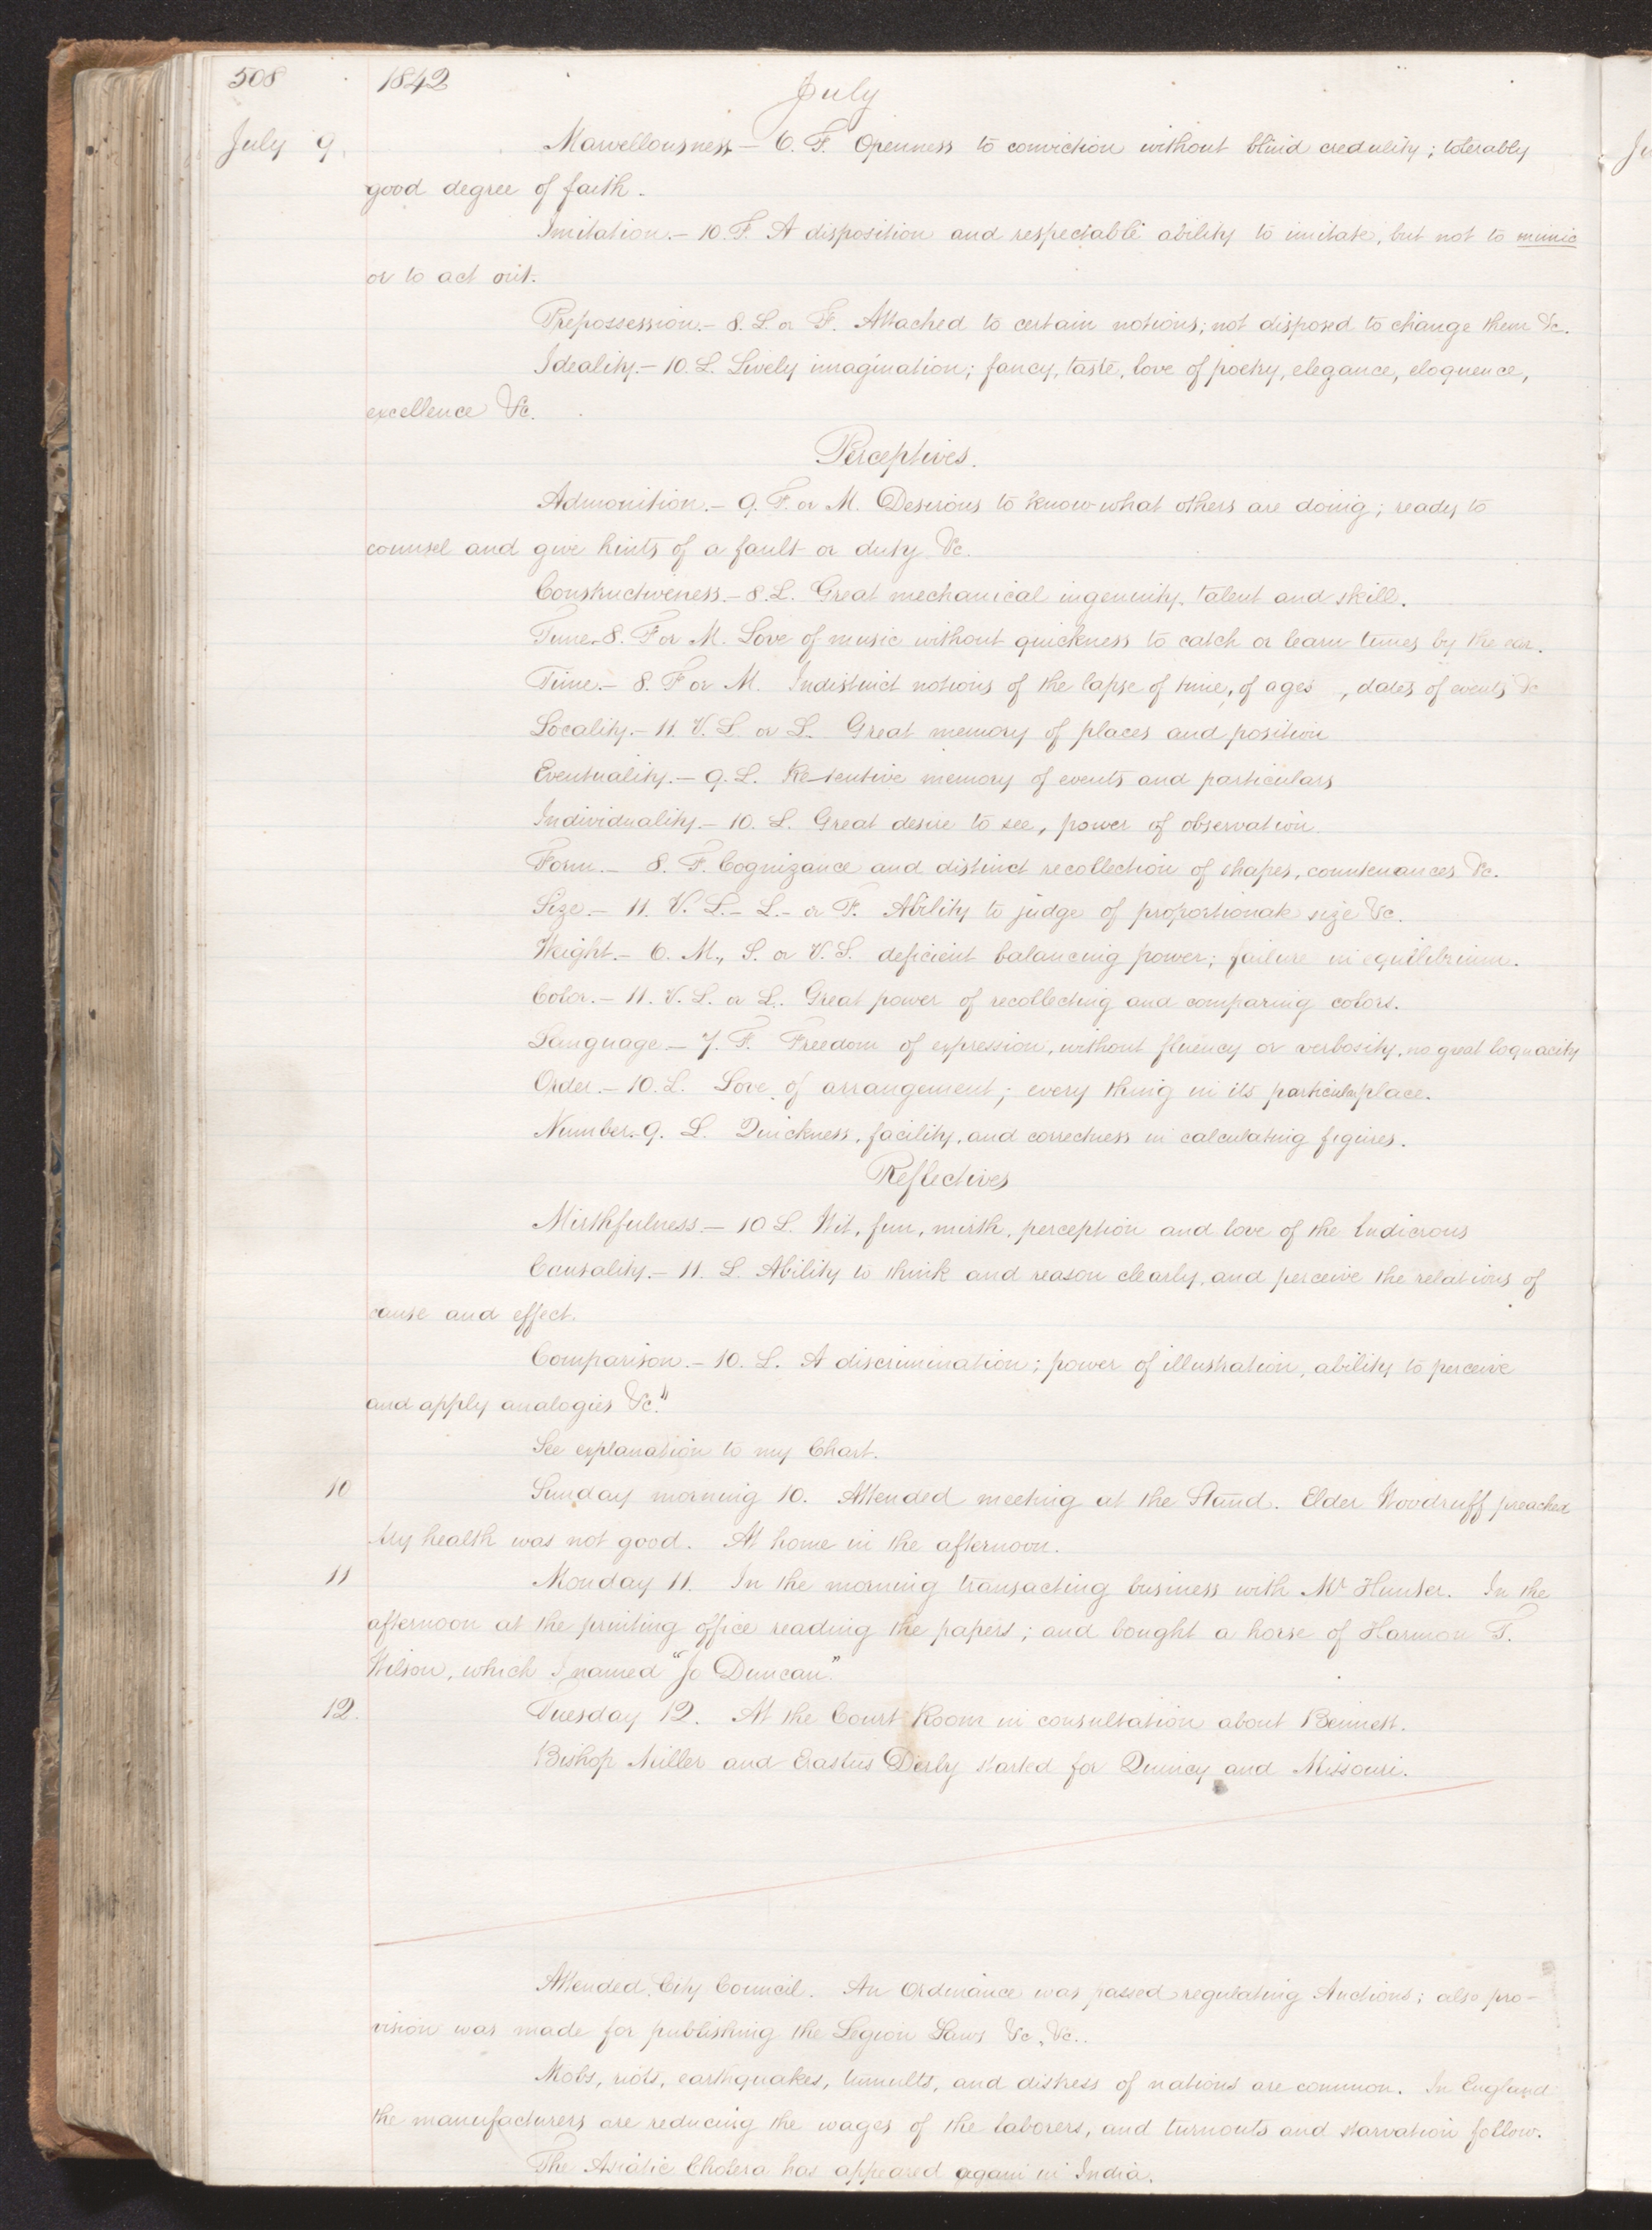 508 1842 July
July 9. Marvellousness — 6. F. Openness to conviction without blind credulity; tolerably
good degree of faith.
Imitation. — 10. F. A disposition and respectable ability to imitate, but not to mimic
or to act out.
Prepossession. — 8. L. or F. Attached to certain notions; not disposed to change them &c.
Ideality. — 10. L. Lively imagination; fancy, taste, love of poetry, elegance, eloquence,
excellence &c.
Perceptives.
Admonition. — 9. F. or M. Desirous to know what others are doing; ready to
counsel and give hints of a fault or duty &c.
Constructiveness. — 8. L. Great mechanical ingenuity, talent and skill.
Tune. 8. F or M. Love of music without quickness to catch or learn tunes by the ear.
Time. — 8. F or M. Indistinct notions of the lapse of time, of ages, dates of events &c
Locality. — 11. V. L. or L. Great memory of places and position
Eventuality. — 9. L. Retentive memory of events and particulars
Individuality. — 10. L. Great desire to see, power of observation.
Form. — 8. F. Cognizance and distinct recollection of shapes, countenances &c.
Size. — 11. V. L. — L. — or F. Ability to judge of proportionate size &c.
Weight. — 6. M., S. or V. S. deficient balancing power; failure in equilibrium.
Color. — 11. V. L. or L. Great power of recollecting and comparing colors.
Language — 7. F. Freedom of expression, without fluency or verbosity, no great loquacity
Order. — 10. L. Love of arrangement; every thing in its particular place.
Number. 9. L. Quickness, facility, and correctness in calculating figures.
Reflectives
Mirthfulness — 10 L. Wit, fun, mirth, perception and love of the ludicrous
Causality. — 11. L. Ability to think and reason clearly, and perceive the relations of
cause and effect.
Comparison. — 10. L. A discrimination; power of illustration, ability to perceive
and apply analogies &c."
See explanation to my Chart.
10 Sunday morning 10. Attended meeting at the Stand. Elder Woodruff preached
My health was not good. At home in the afternoon.
11 Monday 11. In the morning transacting business with Mr Hunter. In the
afternoon at the printing office reading the papers; and bought a horse of Harmon T.
Wilson, which I named "Jo Duncan."
12. Tuesday 12. At the Court Room in consultation about Bennett.
Bishop Miller and Erastus Derby started for Quincy and Missouri.
Attended City Council. An Ordinance was passed regulating Auctions; also pro-
vision was made for publishing the Legion Laws &c, &c.
Mobs, riots, earthquakes, tumults, and distress of nations are common. In England
the manufacturers are reducing the wages of the laborers, and turnouts and starvation follow.
The Asiatic Cholera has appeared again in India.